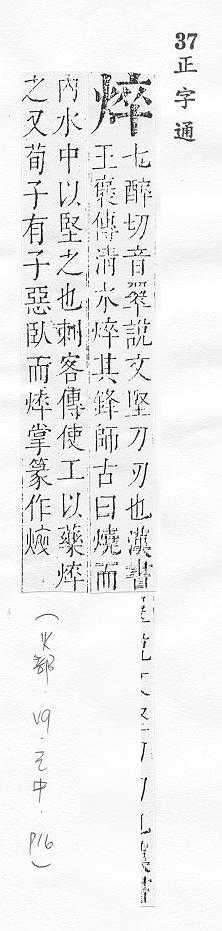 37正字通
焠
七醉切音翠說文堅刀刃也漢書
王襃傳清水焠其鋒師古曰燒而
內水中以堅之也刺客傳使工以藥焠
之又荀子有子惡臥而焠掌篆作焠
(火部.V9.巳中.P16)